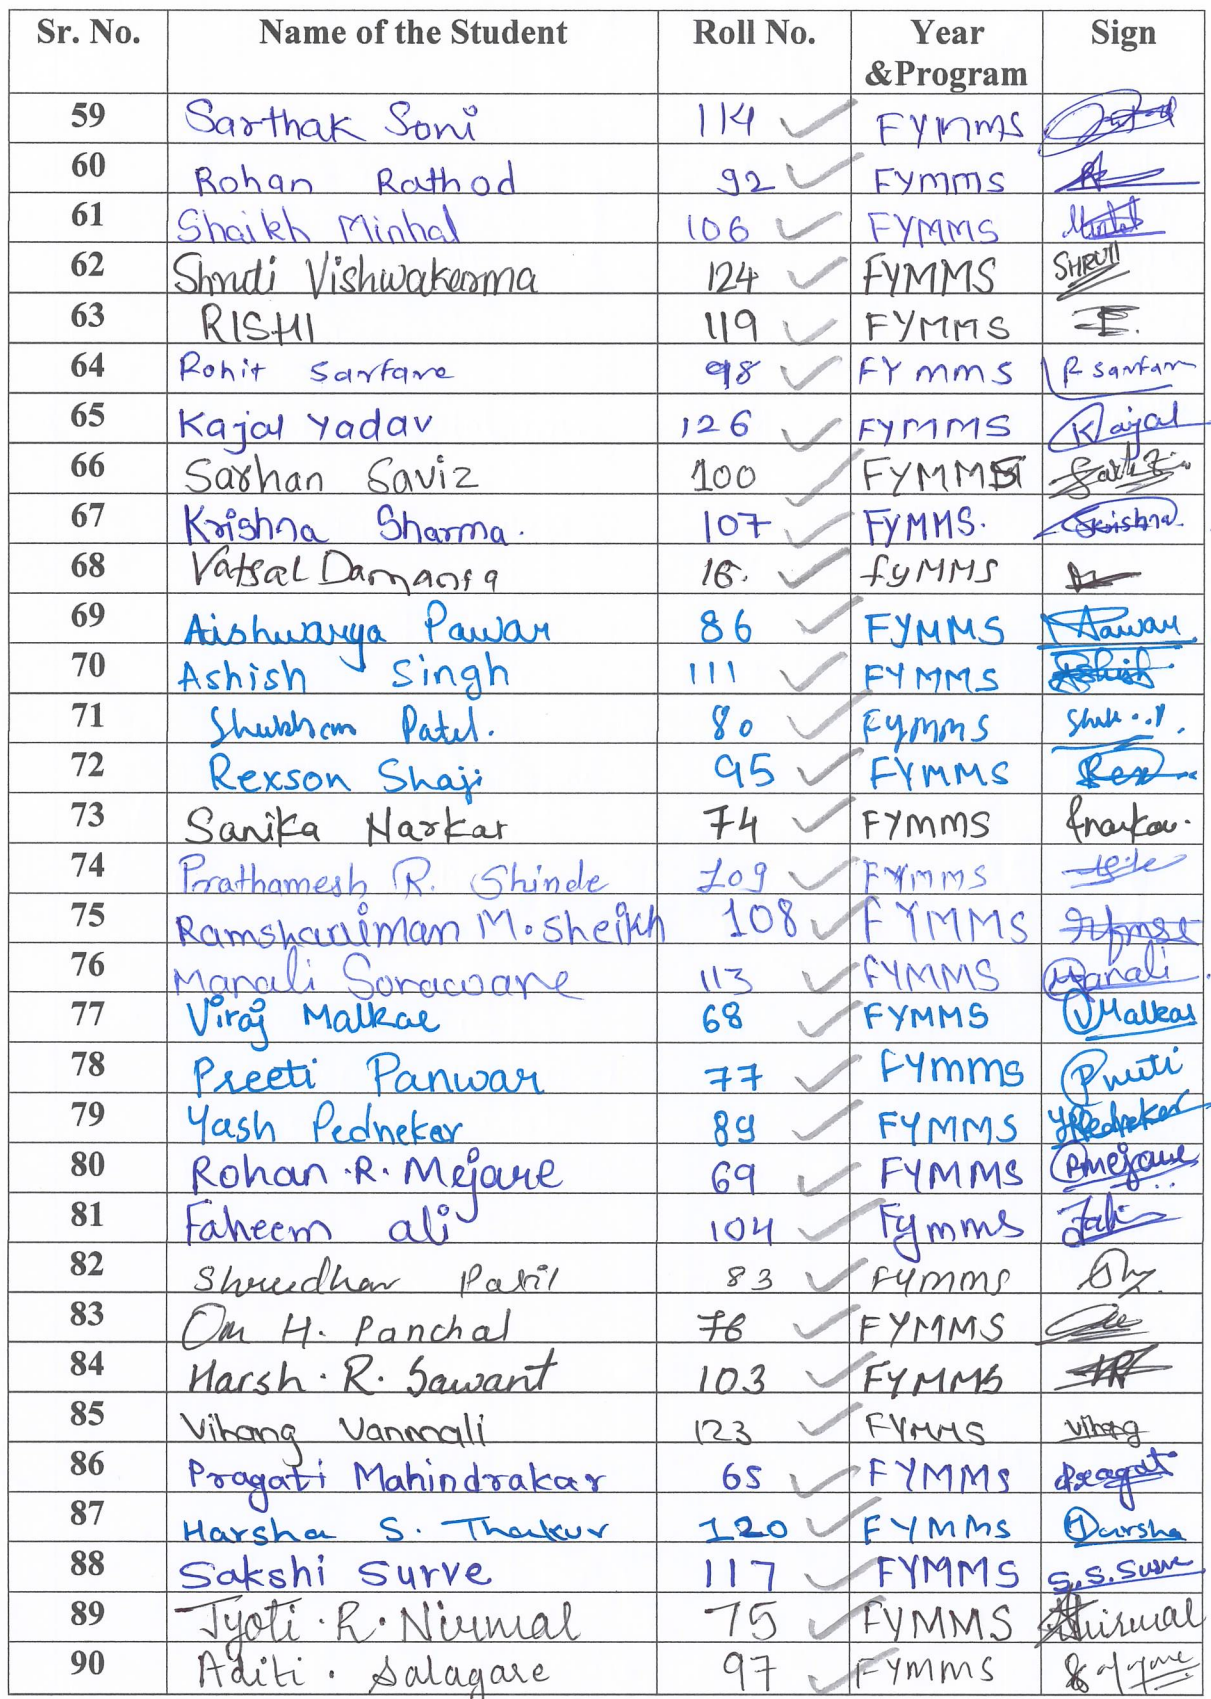 Sr. No. Name of the Student Roll No. Year &Program Sign
59 Sarthak Soni 114 FYMMS
60 Rohan Rathod 92 FYMMS
61 Shaikh Minhal 106 FYMMS
62 Shruti Vishwakarma 124 FYMMS SHRUTI
63 RISHI 119 FYMMS
64 Rohit Sarfare 98 FYMMS
65 Kajal Yadav 126 FYMMS Kajal
66 Sarhan Saviz 100 FYMMS
67 Krishna Sharma. 107 FYMMS. Krishna
68 Vatsal Damania 16. fyMMS
69 Aishwarya Pawar 86 FYMMS APawar
70 Ashish Singh 111 FYMMS Ashish
71 Shubham Patel. 80 Fymms
72 Rexson Shaji 95 FYMMS Rex
73 Sanika Narkar 74 FYMMS
74 Prathamesh R. Shinde 109 FYMMS
75 Ramshaaiman M. Sheikh 108 FYMMS
76 Manali Sonawane 113 FYMMS Manali
77 Viraj Malkar 68 FYMMS VMalkar
78 Preeti Panwar 77 FYMMS Preeti
79 Yash Pednekar 89 FYMMS YPednekar
80 Rohan .R. Mejare 69 FYMMS RMejare
81 Faheem ali 104 Fymms
82 Shreedhar Patil 83 FYMMS
83 Om H. Panchal 76 FYMMS
84 Harsh . R. Sawant 103 FYMMS
85 Vihang Vanmali 123 FYMMS Vihang
86 Pragati Mahindrakar 65 FYMMS Pragati
87 Harsha S. Thakur 120 FYMMS Harsha
88 Sakshi Surve 117 FYMMS S.S.Surve
89 Jyoti . R . Nirmal 75 FYMMS Nirmal
90 Aditi . Salagare 97 FYMMS